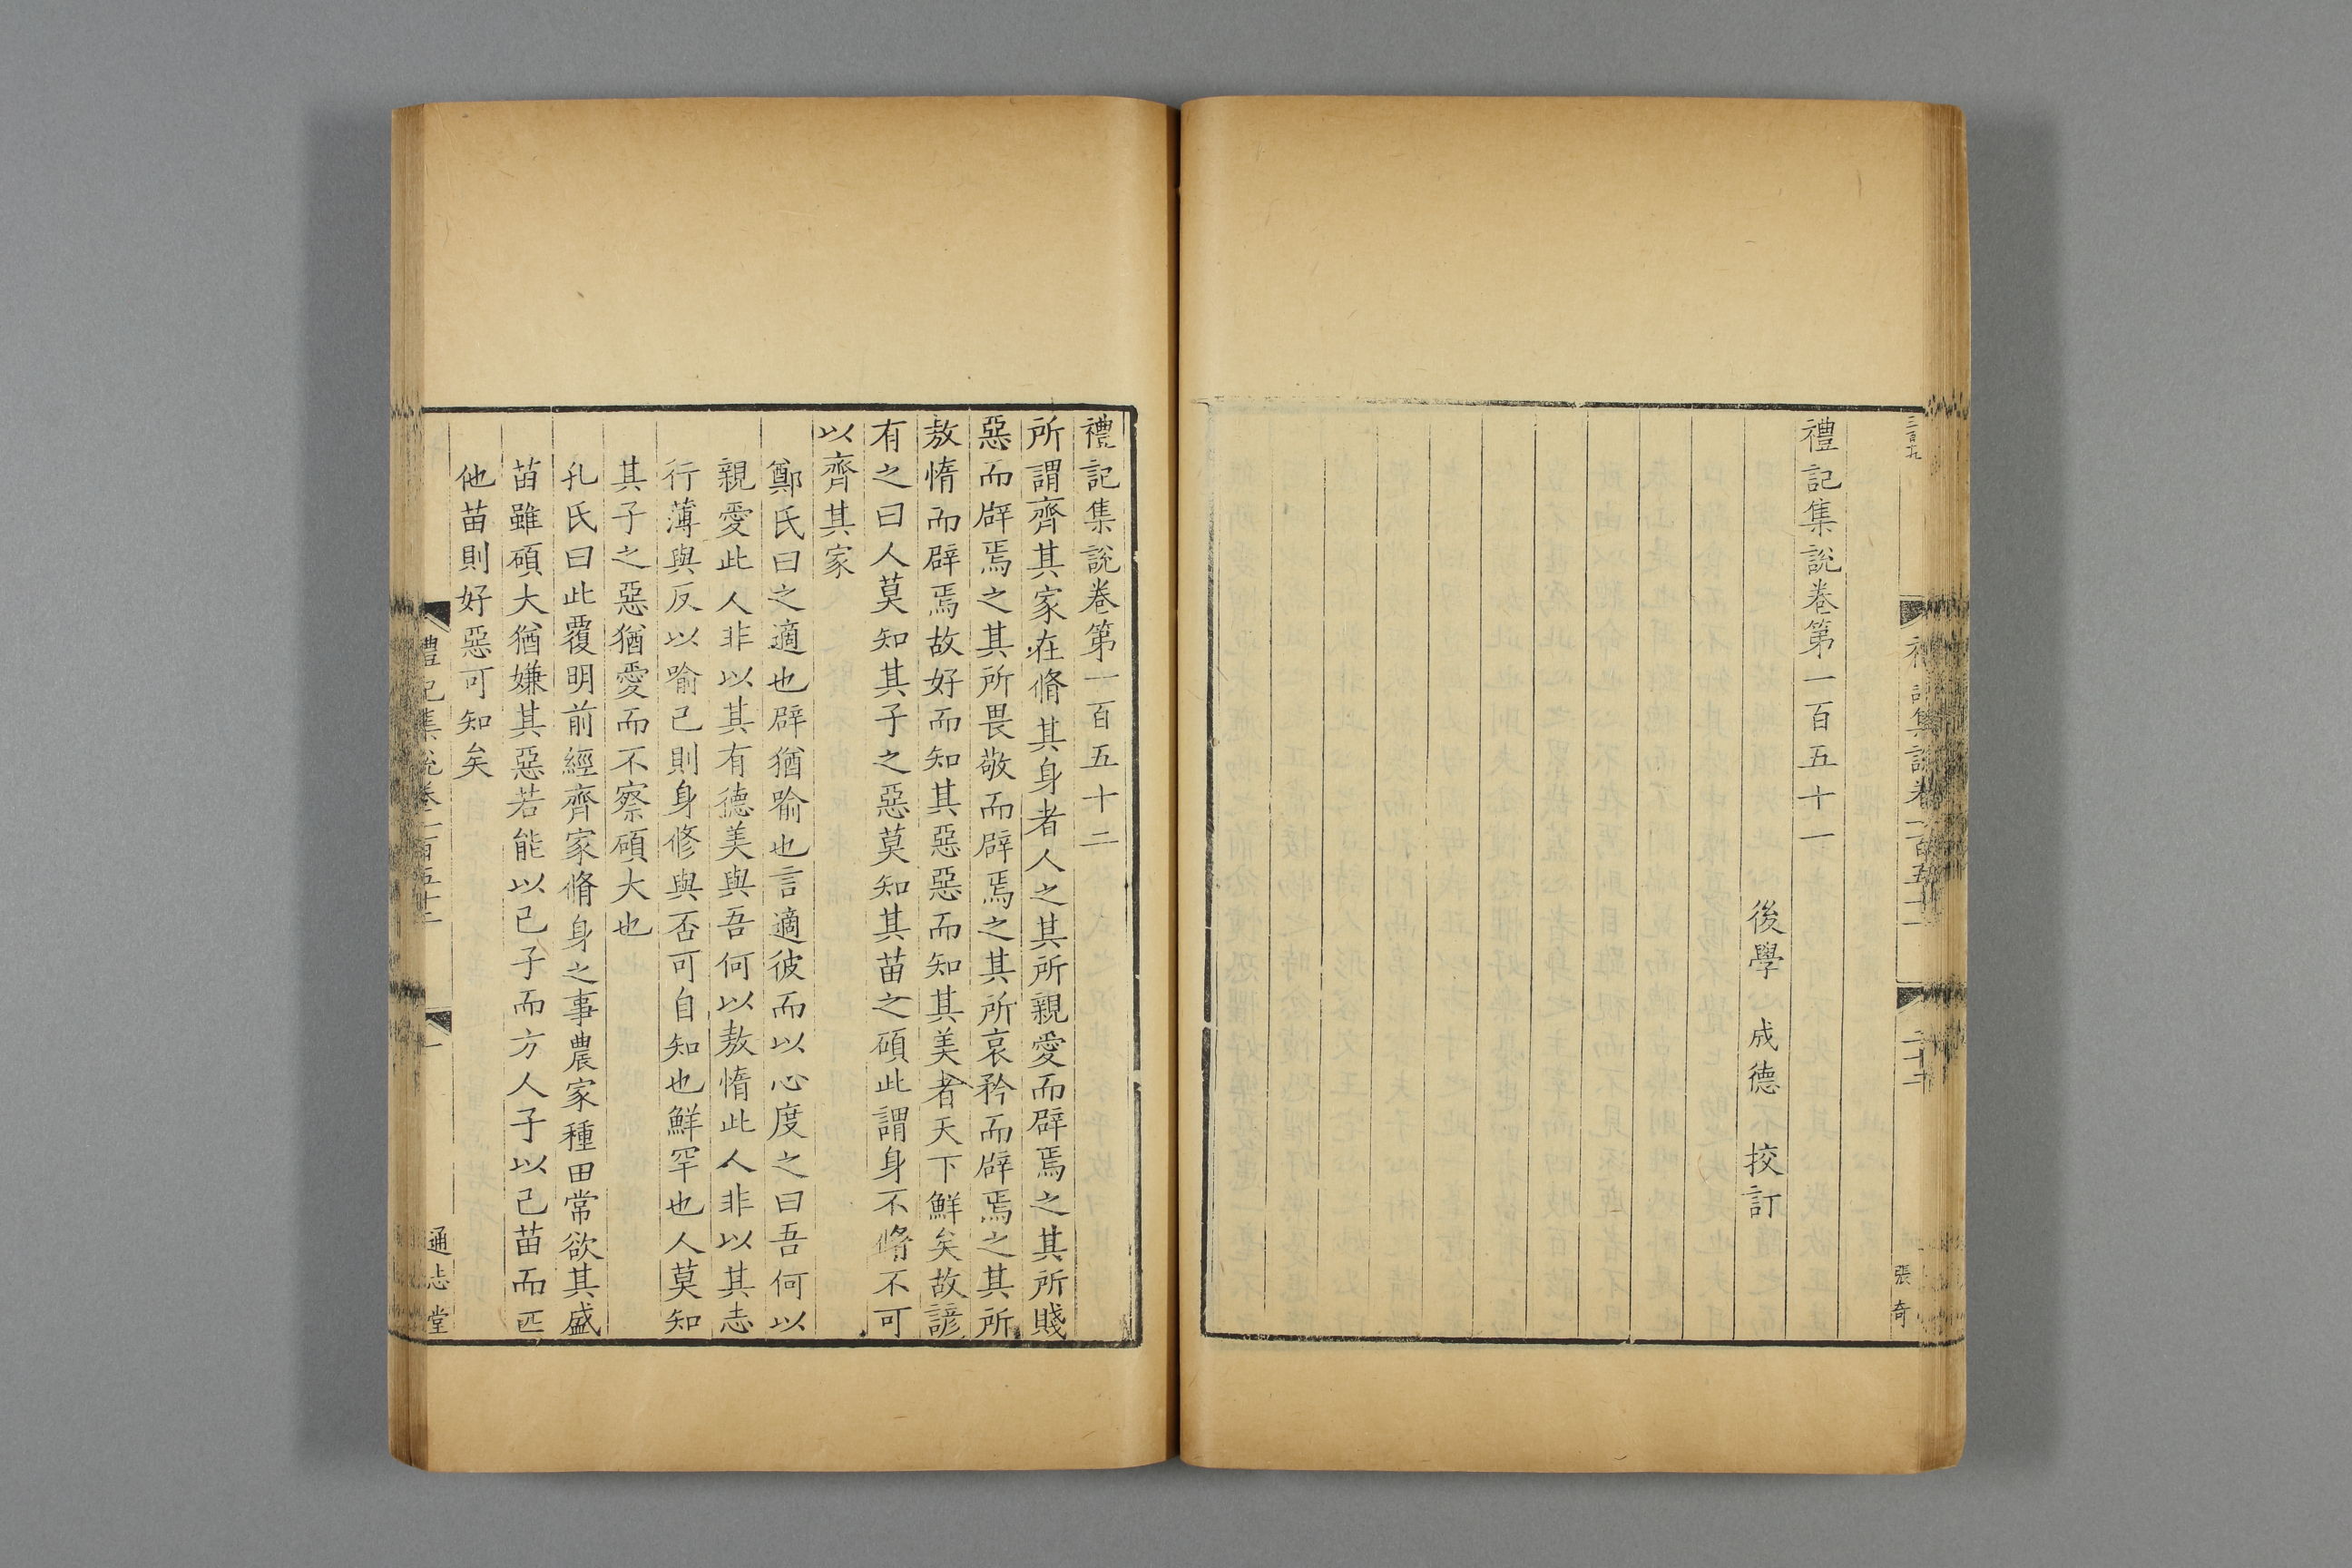 禮記集說卷第一百五十一
後學 成德 挍訂
張奇
禮記集說卷第一百五十二
所謂齊其家在脩其身者人之其所親愛而辟焉之其所賤
惡而辟焉之其所畏敬而辟焉之其所哀矜而辟焉之其所
敖惰而辟焉故好而知其惡惡而知其美者天下鮮矣故諺
有之曰人莫知其子之惡莫知其苗之碩此謂身不脩不可
以齊其家
鄭氏曰之適也辟猶喻也言適彼而以心度之曰吾何以
親愛此人非以其有德美與吾何以敖惰此人非以其志
行薄與反以喻己則身修與否可自知也鮮罕也人莫知
其子之惡猶愛而不察碩大也
孔氏曰此覆明前經齊家脩身之事農家種田常欲其盛
苗雖碩大猶嫌其惡若能以己子而方人子以己苗而匹
他苗則好惡可知矣
禮記集說卷一百五十二
一
通志堂